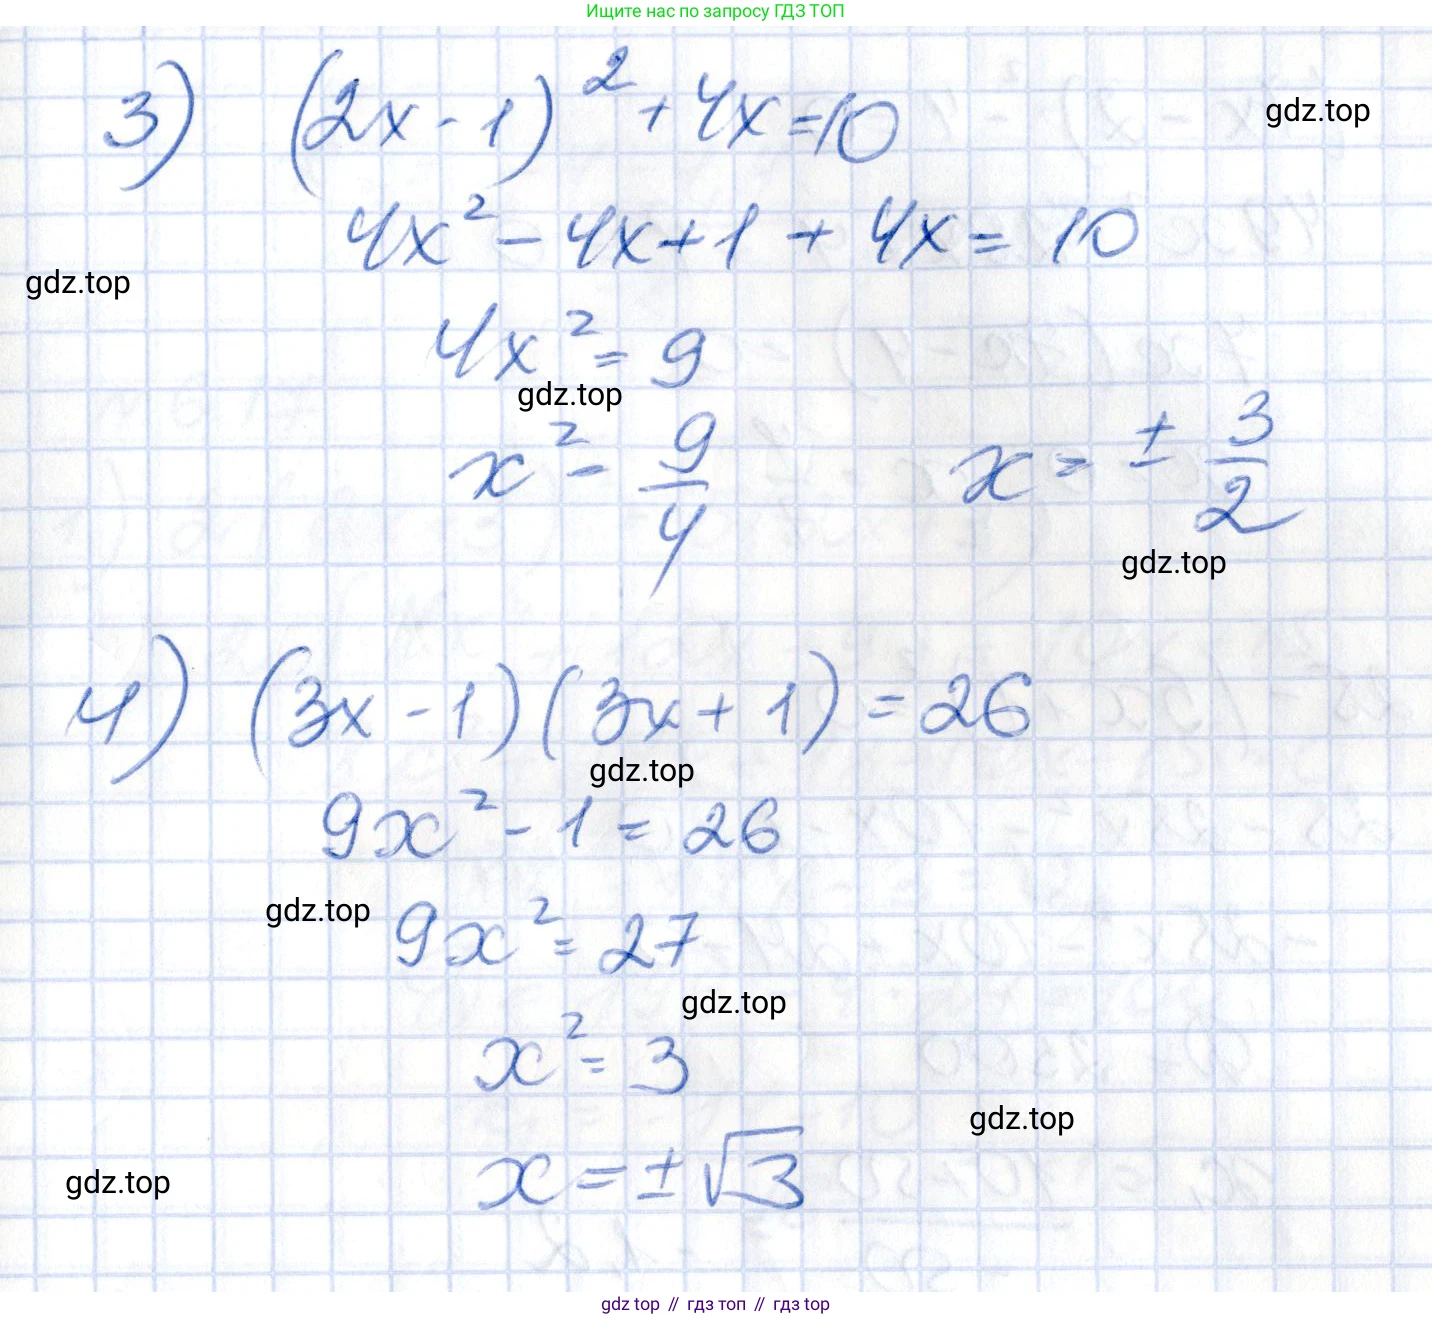 Ищите нас по запросу ГДЗ ТОП
3) (2x - 1)² + 4x = 10
gdz.top
4x² - 4x + 1 + 4x = 10
gdz.top
4x² = 9
gdz.top
x² = 9/4 x = ± 3/2
gdz.top
4) (3x - 1)(3x + 1) = 26
gdz.top
9x² - 1 = 26
gdz.top
9x² = 27
gdz.top
x² = 3
gdz.top
x = ± √3
gdz.top
gdz top // гдз топ // гдз top